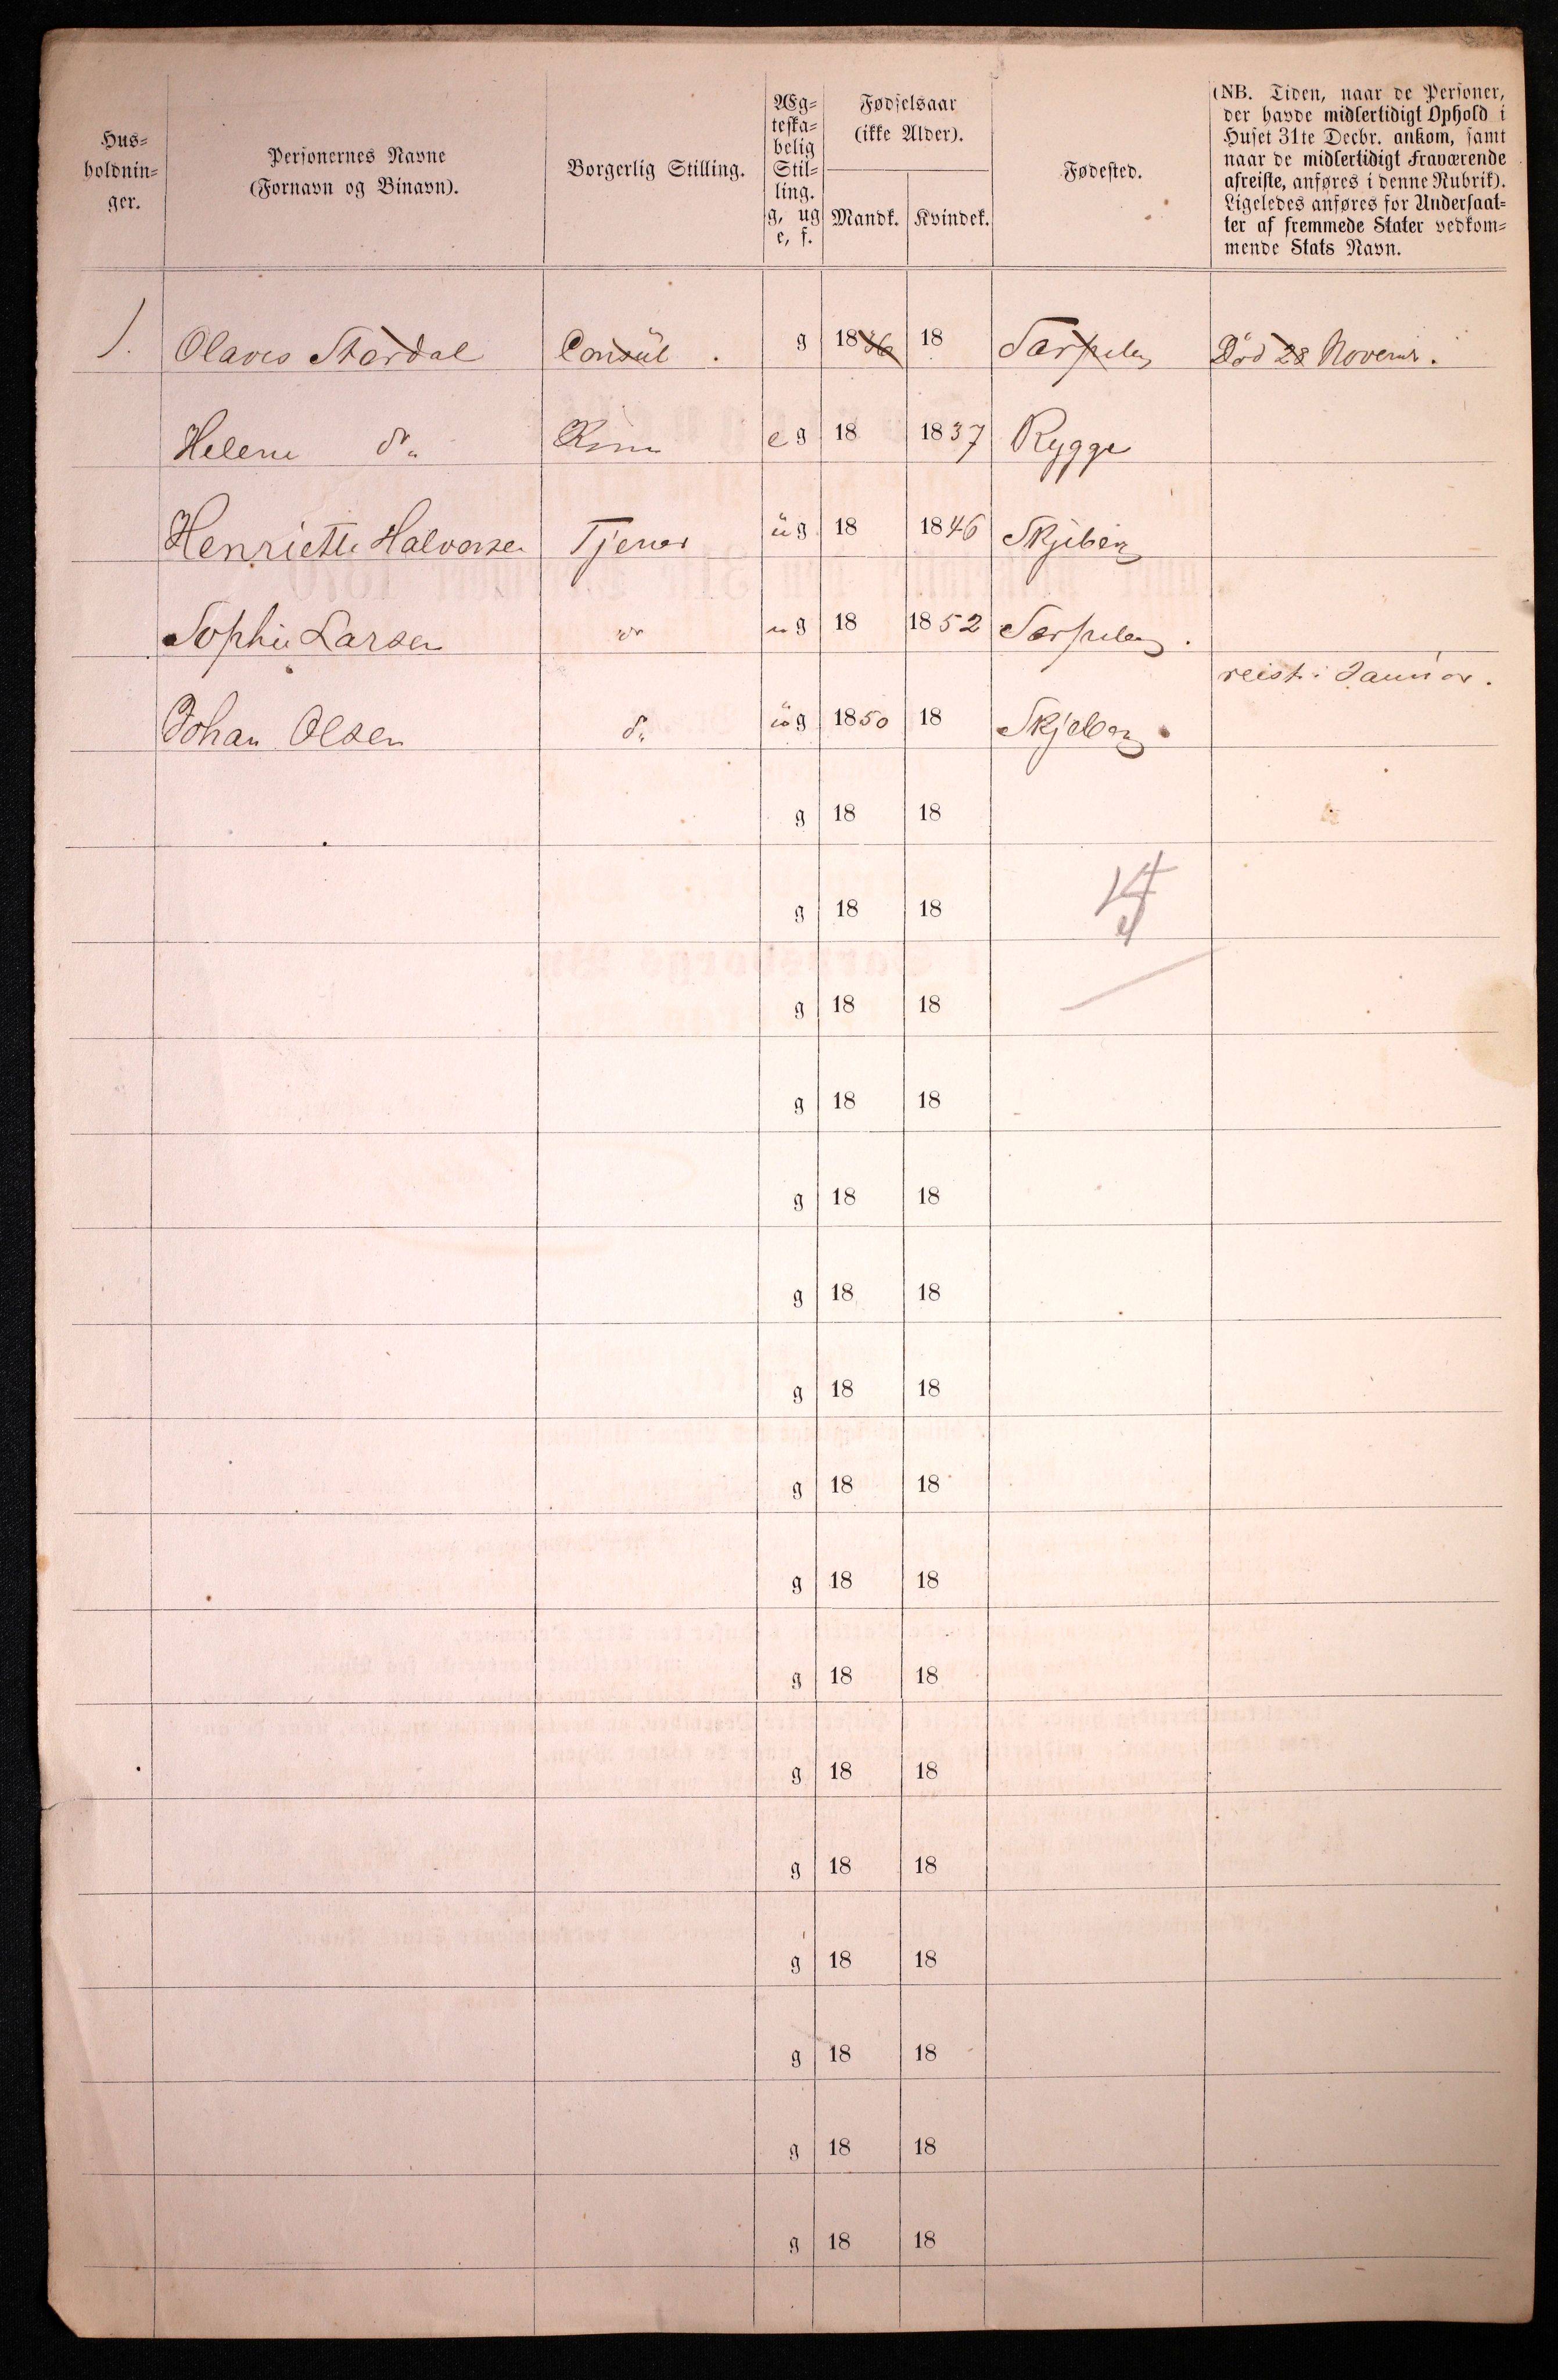 Hus=
holdnin=
ger.
Personernes Navne
(Fornavn og Binavn).
Borgerlig Stilling.
Æg=
teska=
belig
Stil=
ling.
g, ug
e, f.
Fødselsaar
(ikke Alder).
Mandk. Kvindek.
Fødested.
(NB. Tiden, naar de Personer,
der havde midlertidigt Ophold i
Huset 31te Decbr. ankom, samt
naar de midlertidigt Fraværende
afreiste, anføres i denne Rubrik).
Ligeledes anføres for Undersaat=
ter af fremmede Stater vedkom=
mende Stats Navn.
1. Olaves Stordal Consül . g 1836 18 Sarpsborg Död 28 Novembr.
Helene do eg 18 1837 Rygge
Henriette Halvorsen Tjener üg 18 1846 Skjeberg
Sophie Larsen do ug 18 1852 Sarpsborg .
reist i Januar.
Johan Olsen do üg 1850 18 Skjeberg
g 18 18
g 18 18 4
g 18 18
g 18 18
g 18 18
g 18 18
g 18 18
g 18 18
g 18 18
g 18 18
g 18 18
g 18 18
g 18 18
g 18 18
g 18 18
g 18 18